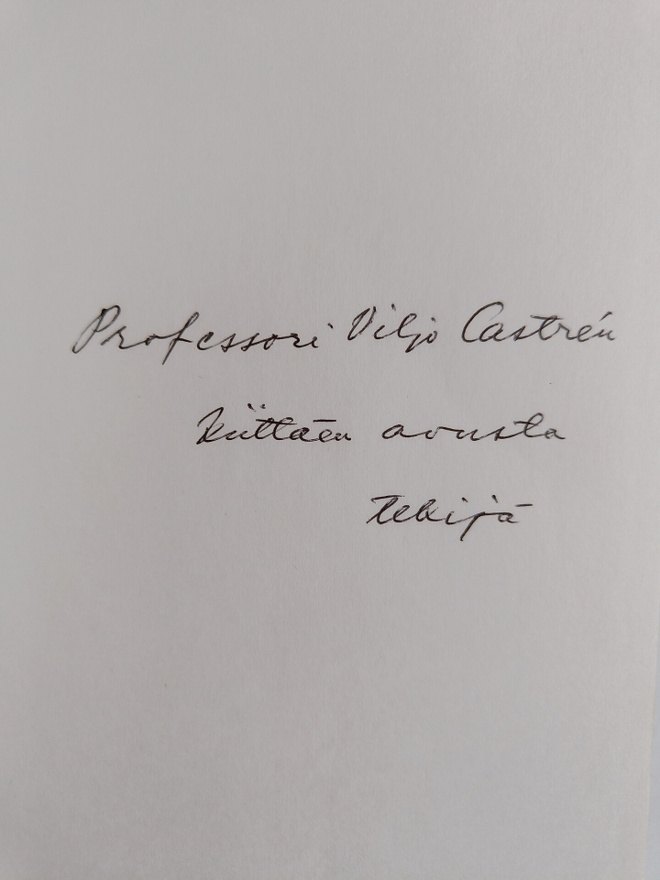 Professori Viljo Castrén
kiittäen avusta
tekijä